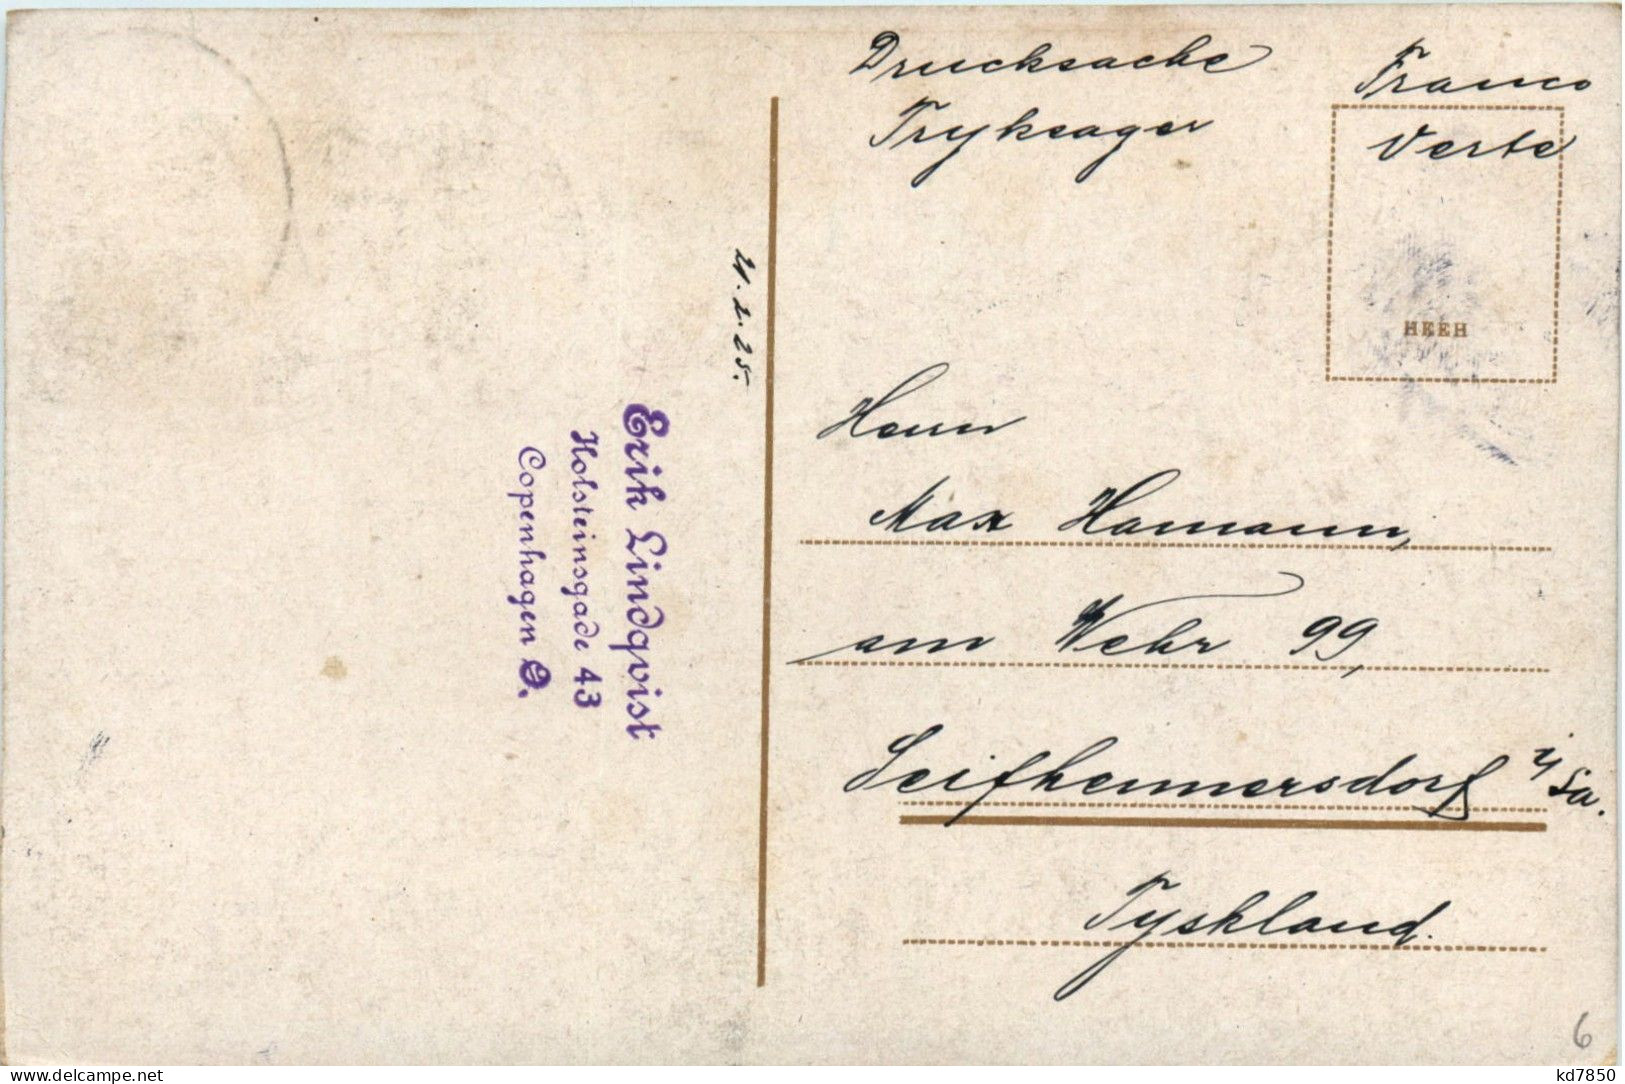 Drucksache
Tryksager
Franco
Verte
HEEH
21.2.25.
Erik Lindqvist
Holsteinsgade 43
Copenhagen Ø.
Herrn
Max Hamann,
am Wehr 99,
Seifhennersdorf i/Sa.
Tyskland.
6
www.delcampe.net
kd7850